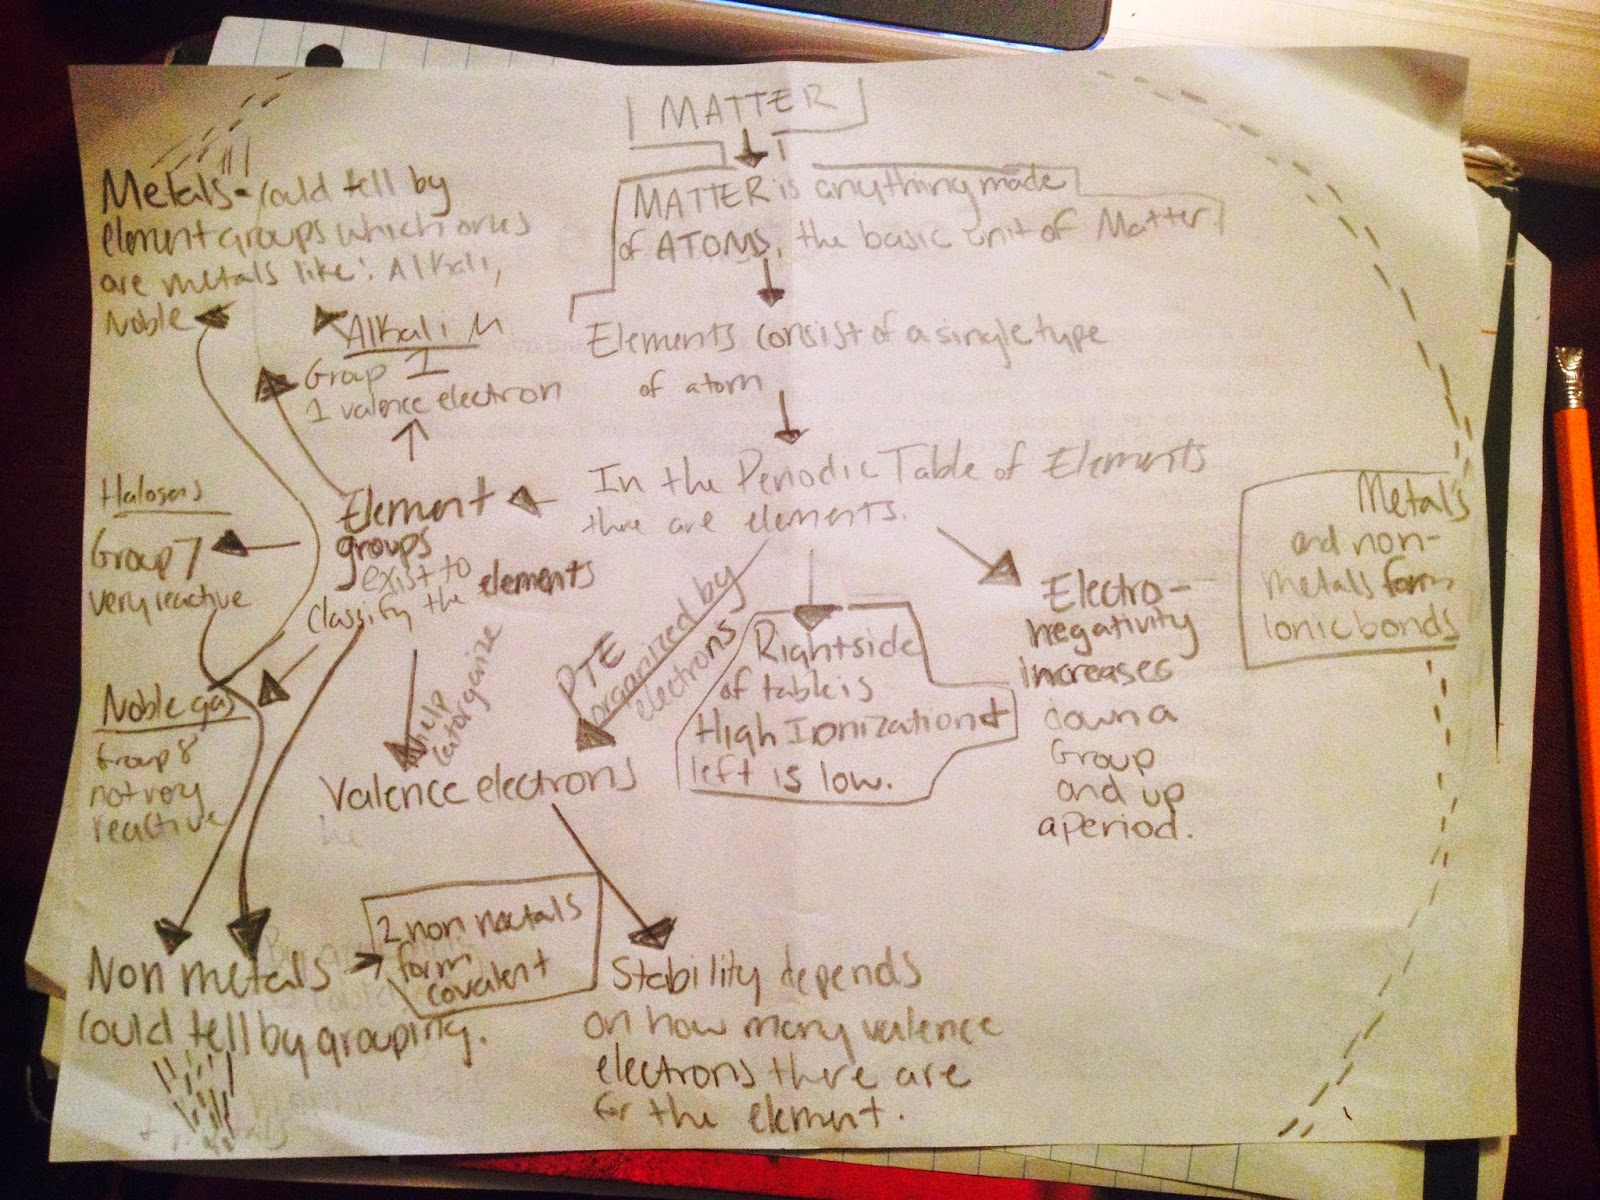 MATTER
MATTER is anything made
of ATOMS, the basic unit of Matter
Elements consist of a single type
of atom
In the Periodic Table of Elements
there are elements.
Metals - could tell by
element groups which ones
are metals like: Alkali,
Noble
Alkali M
Group 1
1 valence electron
Element
groups
exist to
classify the elements
Halogens
Group 7
very reactive
Noble gas
Group 8
not very
reactive
help
categorize
PTE
organized by
electrons
Valence electrons
he
Rightside
of table is
High Ionization &
left is low.
Electro-
negativity
increases
down a
Group
and up
a period.
Metals
and non-
metals form
ionic bonds
Non metals
could tell by grouping.
2 non metals
form
covalent
Stability depends
on how many valence
electrons there are
for the element.